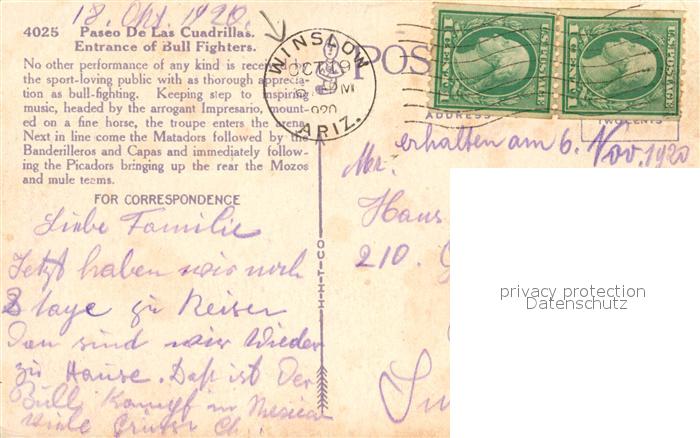 18. Okt. 1920.
4025 Paseo De Las Cuadrillas.
Entrance of Bull Fighters.
No other performance of any kind is received by
the sport-loving public with as thorough apprecia-
tion as bull-fighting. Keeping step to inspiring
music, headed by the arrogant Impresario, mount-
ed on a fine horse, the troupe enters the arena.
Next in line come the Matadors followed by the
Banderilleros and Capas and immediately follow-
ing the Picadors bringing up the rear the Mozos
and mule teams.
FOR CORRESPONDENCE
Liebe Familie
Jetzt haben wir noch
8 Tage zu Reisen
Dan sind wir Wieder
zu Hause. Daß ist Der
Bull Kampf in Mexico
Viele Grüsse Ch.
H-H-T-CO
WINSLOW
OCT 19
PM
1920
ARIZ.
POS
1 CENT 1
U.S. POSTAGE
1 CENT 1
U.S. POSTAGE
ADDRESS
TWO CENTS
erhalten am 6. Nov. 1920
Mr.
Hans
210.
privacy protection
Datenschutz